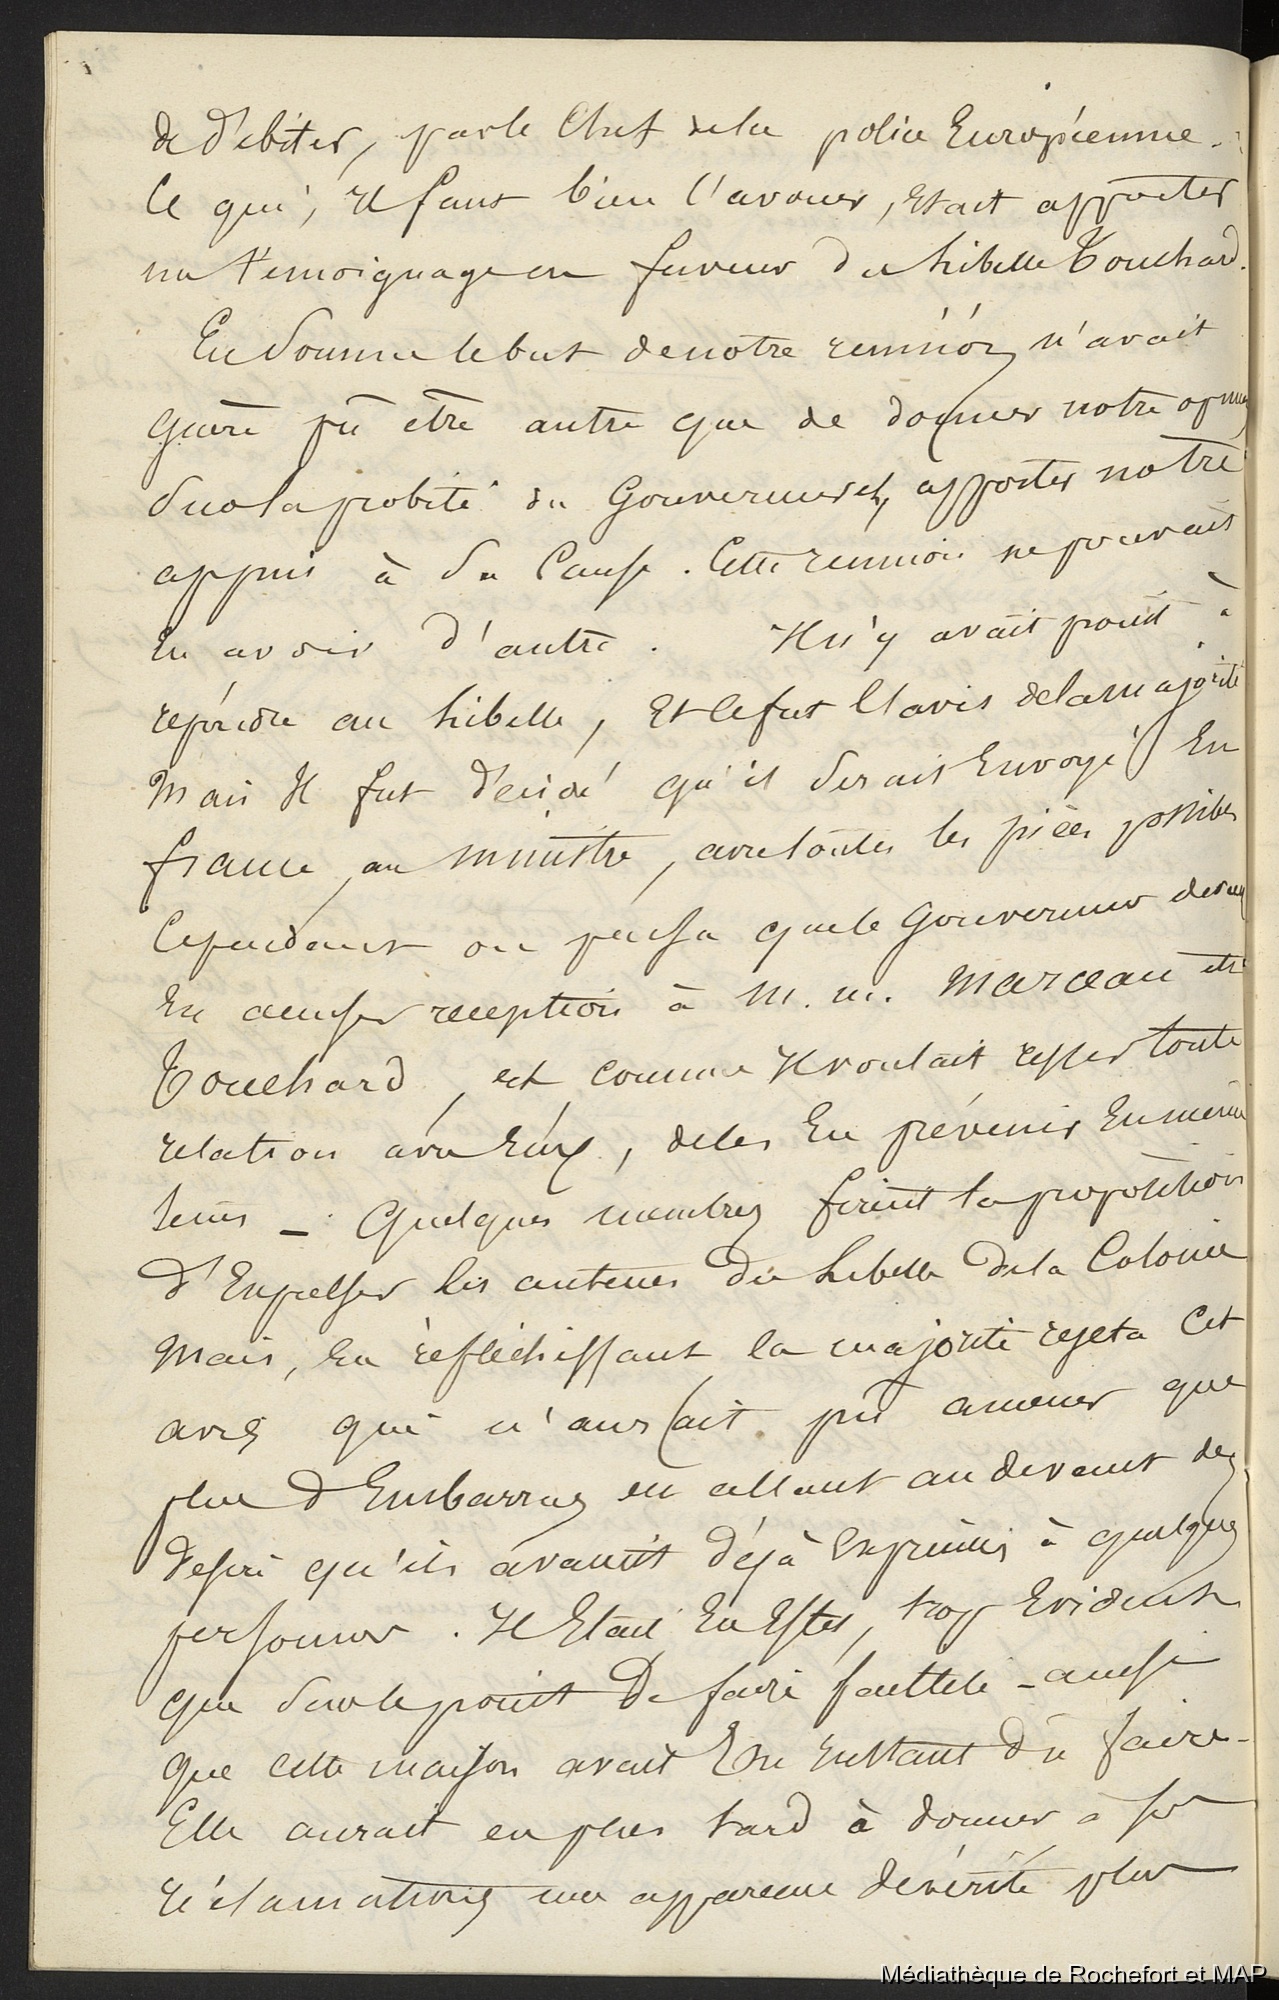 de débiter, par le Chef de la police Européenne.
Ce qui, Il faut bien l'avouer, Etait apporter
un témoignage en faveur du Libelle Touchard.
En Somme le but de notre réunion n'avait
guère pû être autre que de donner notre opinion
Sur la probité du Gouverneur et, apporter notre
appui à Sa Cause. Cette réunion ne pouvait
En avoir d'autre. Il n'y avait point à
répondre au Libelle, Et ce fut l'avis de la majorité
Mais Il fut décidé qu'il Serait Envoyé En
france, au ministre, avec toutes les pièces possibles
Cependant on pensa que le Gouverneur devait
En accuser reception à M. m. Marceau et
Touchard, et comme Il voulait cesser toute
relation avec Eux, de les En prévenir En même
tems – Quelques membres firent la proposition
d'Expulser les auteurs du Libelle de la Colonie
Mais, En réfléchissant la majorité rejeta Cet
avis qui n'aurait pu amener que
plus d'Embarras en allant au devant des
desirs qu'ils avaient déjà Exprimés à quelques
personnes. Il Etait En Effet, trop Evident
que Sur le point De faire faillite – ainsi
que cette maison avait En instant dû faire –
Elle aurait eu plus tard à donner à ses
réclamations une apparence de vérité plus